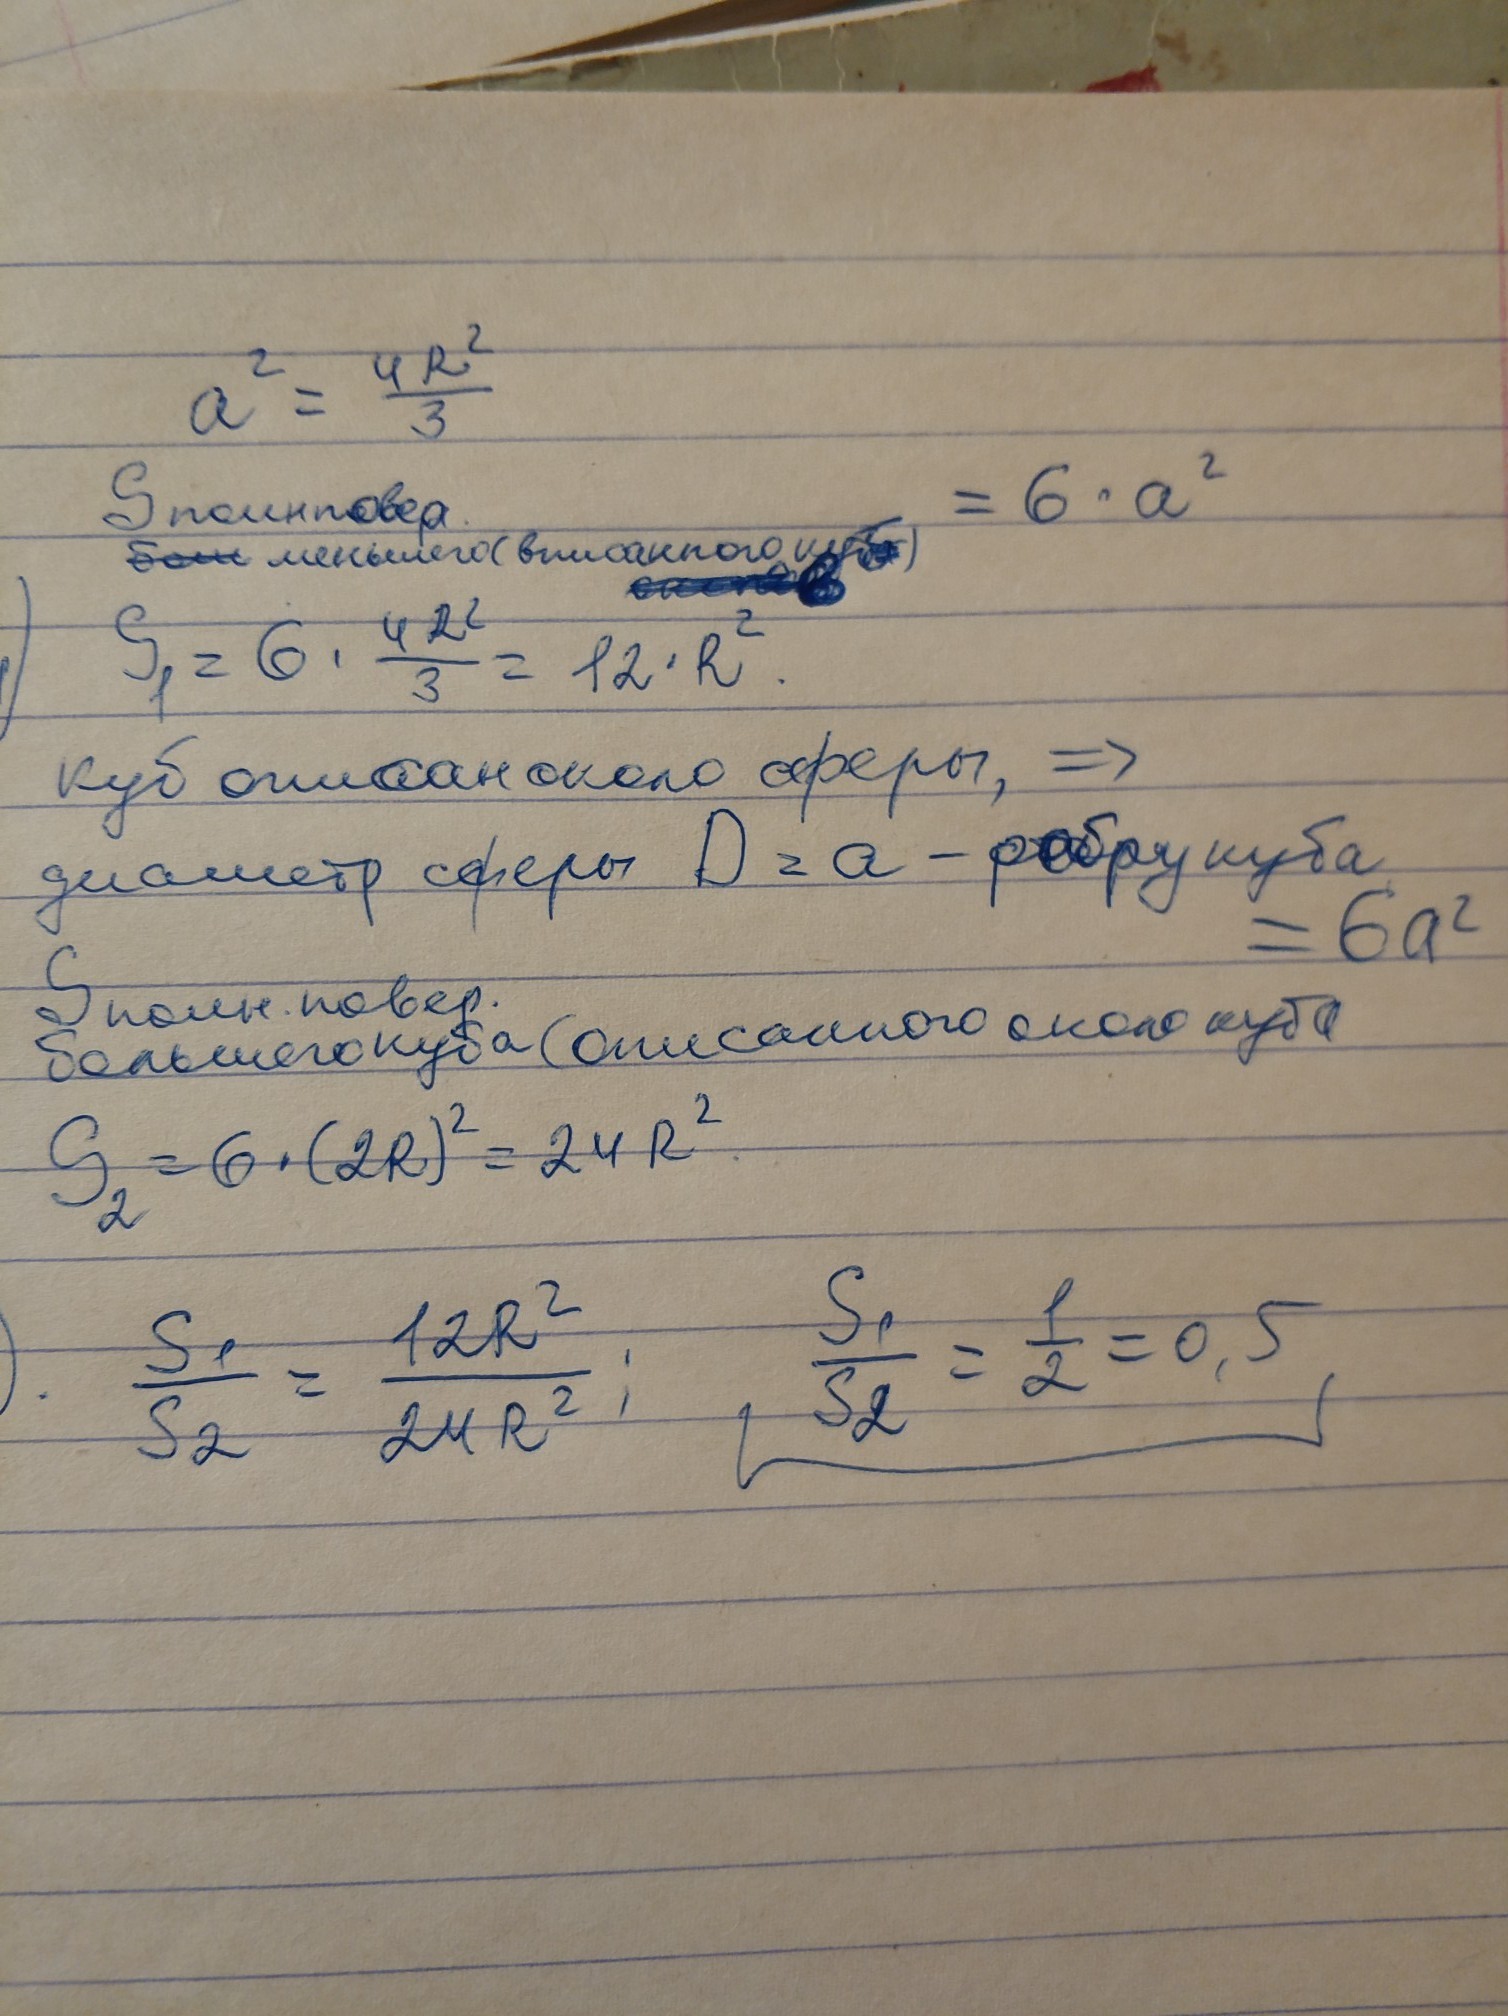 a² = 4R²/3
Sполн повер. = 6 · a²
меньшего (вписанного куба)
) S₁ = 6 · 4R²/3 = 12 · R².
куб описан около сферы, =>
диаметр сферы D = a – ребру куба
= 6a²
Sполн. повер.
большего куба (описанного около куба
S₂ = 6 · (2R)² = 24R².
). S₁/S₂ = 12R²/24R² ; S₁/S₂ = 1/2 = 0,5